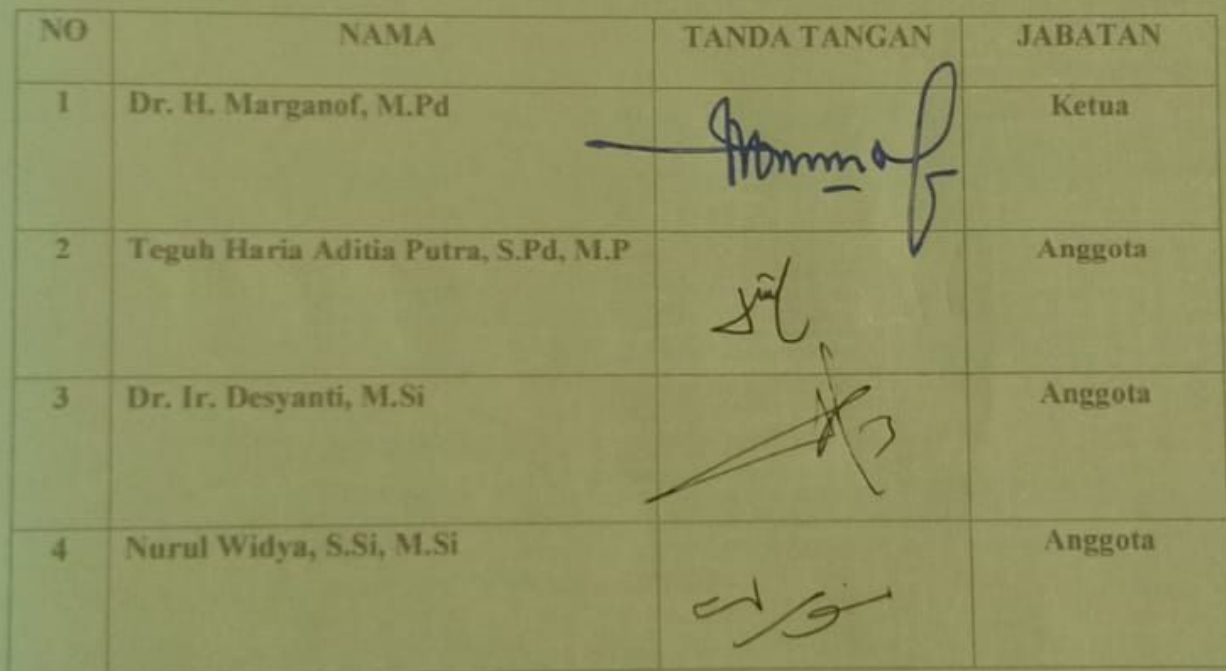 NO NAMA TANDA TANGAN JABATAN
1 Dr. H. Marganof, M.Pd Ketua
2 Teguh Haria Aditia Putra, S.Pd, M.P Anggota
3 Dr. Ir. Desyanti, M.Si Anggota
4 Nurul Widya, S.Si, M.Si Anggota